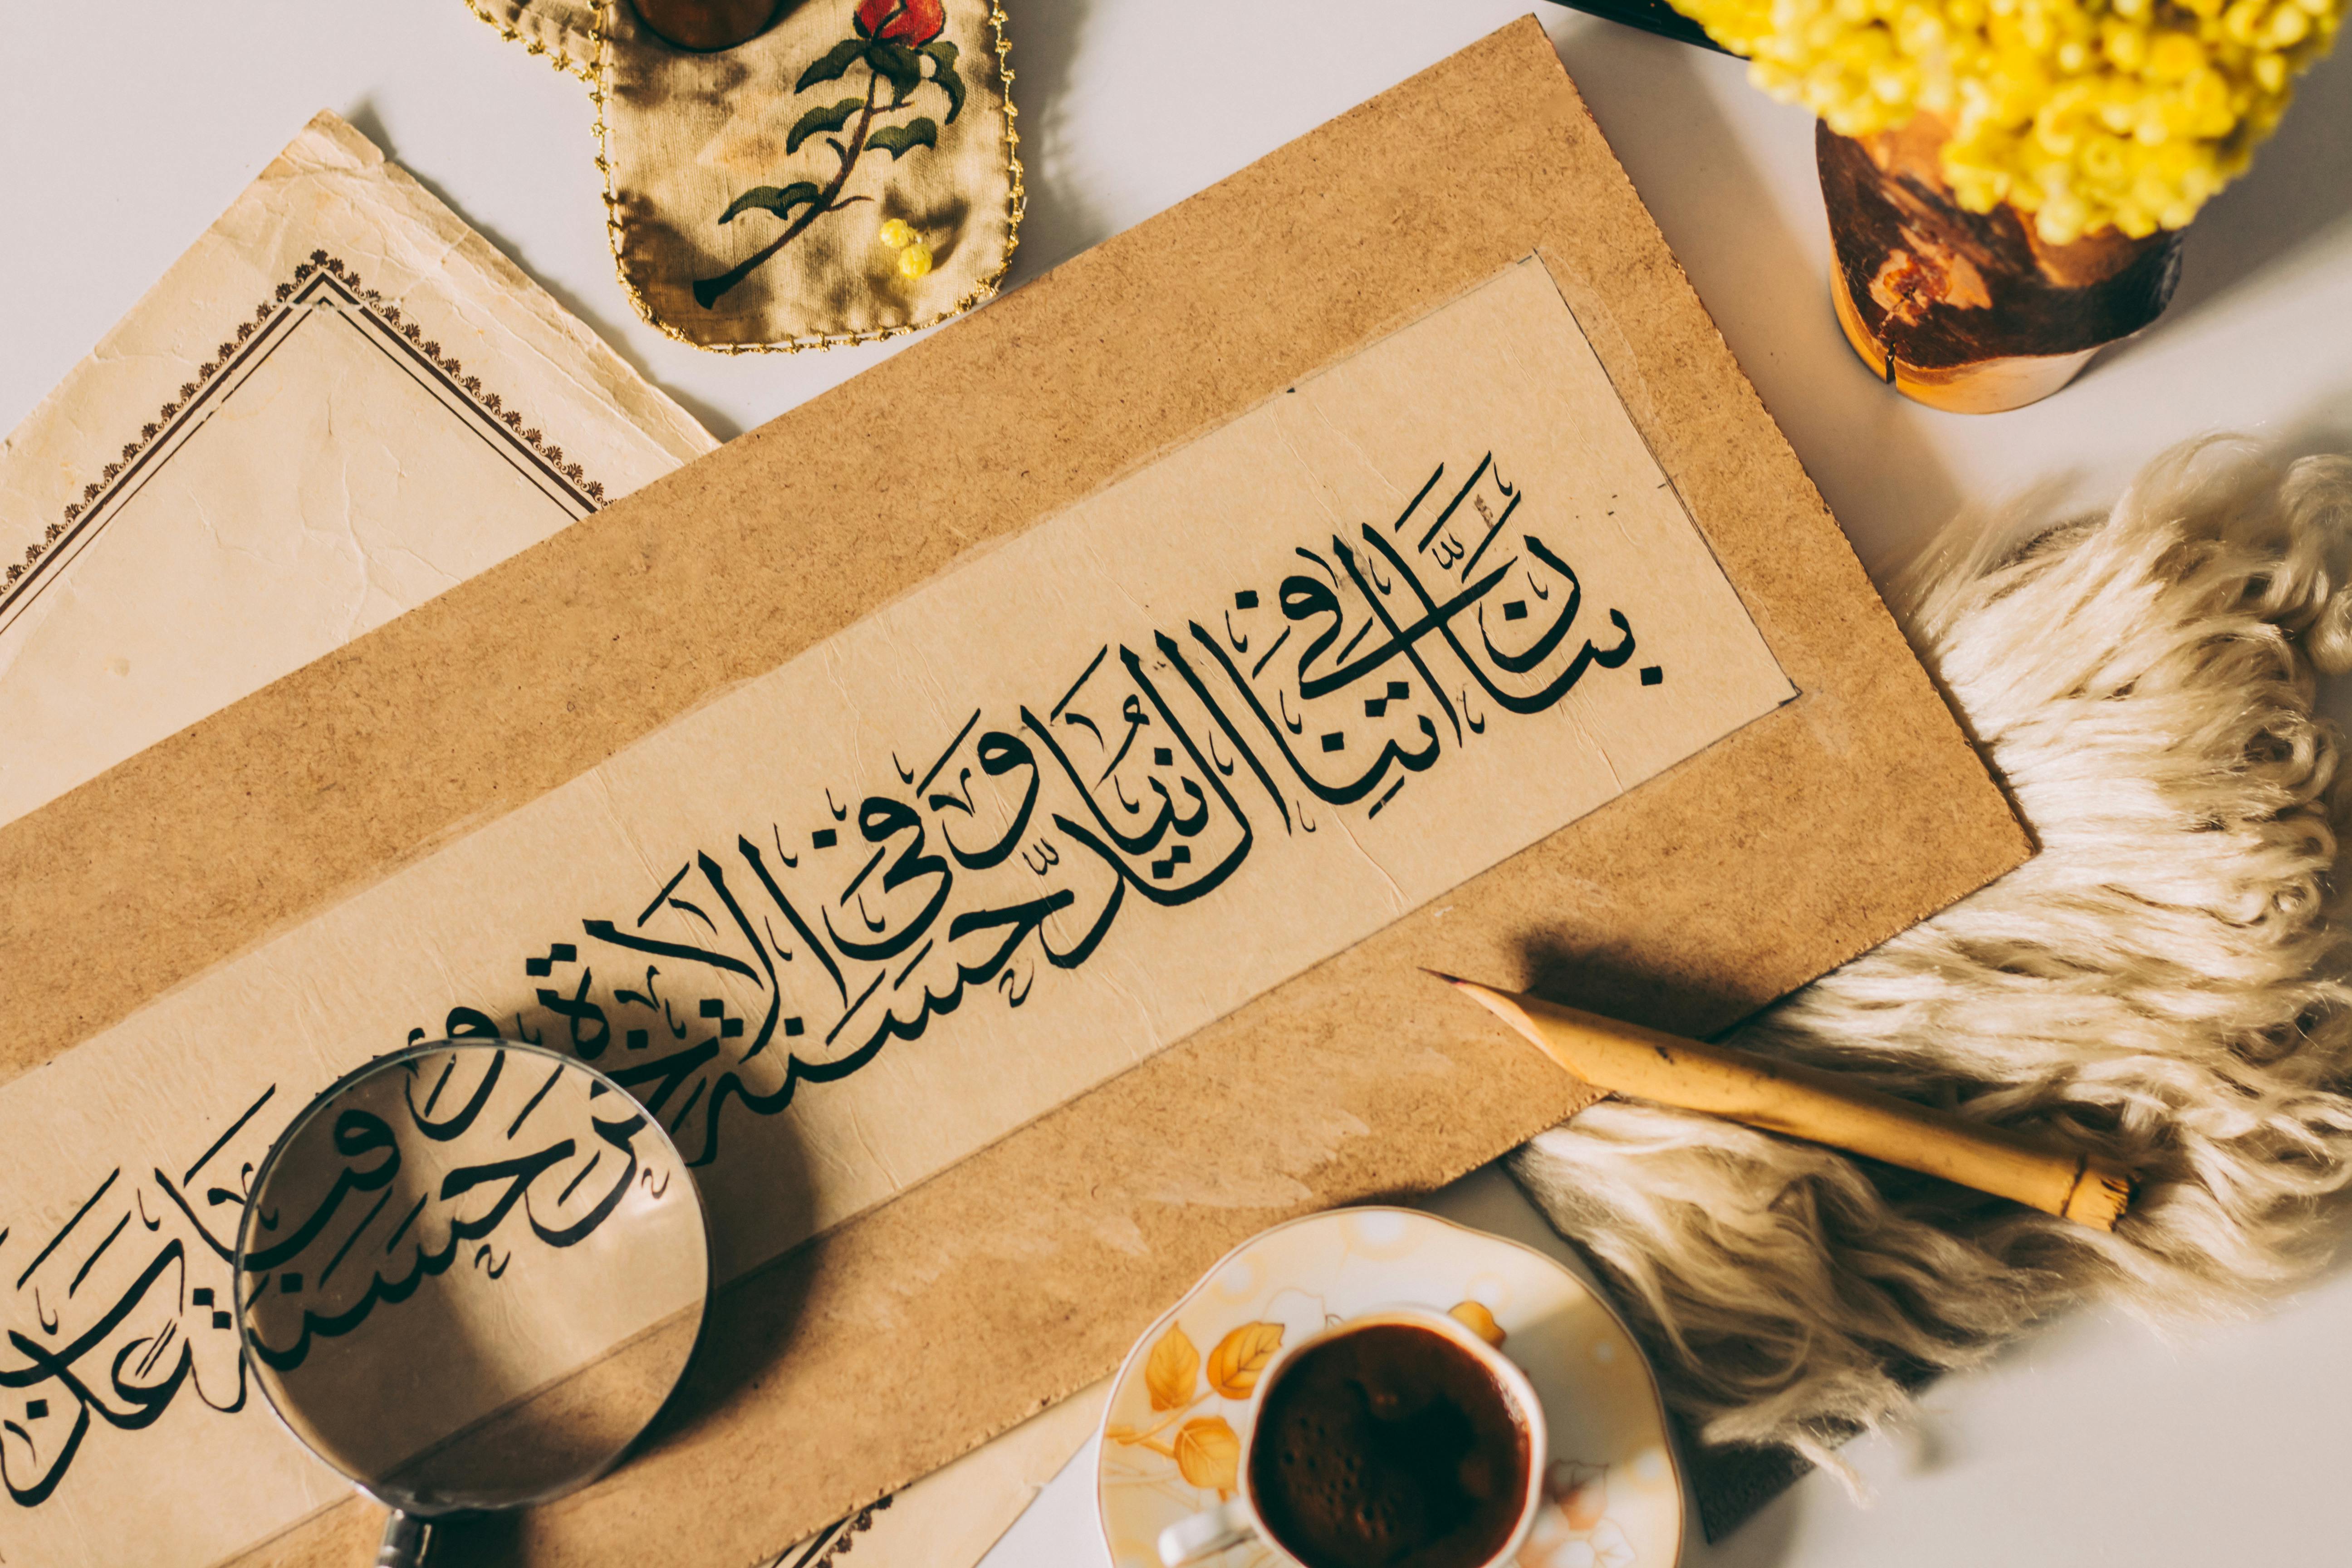 رَبَّنَا اٰتِنَا فِي الدُّنْيَا حَسَنَةً وَفِي الْاٰخِرَةِ حَسَنَةً وَقِنَا عَذَابَ